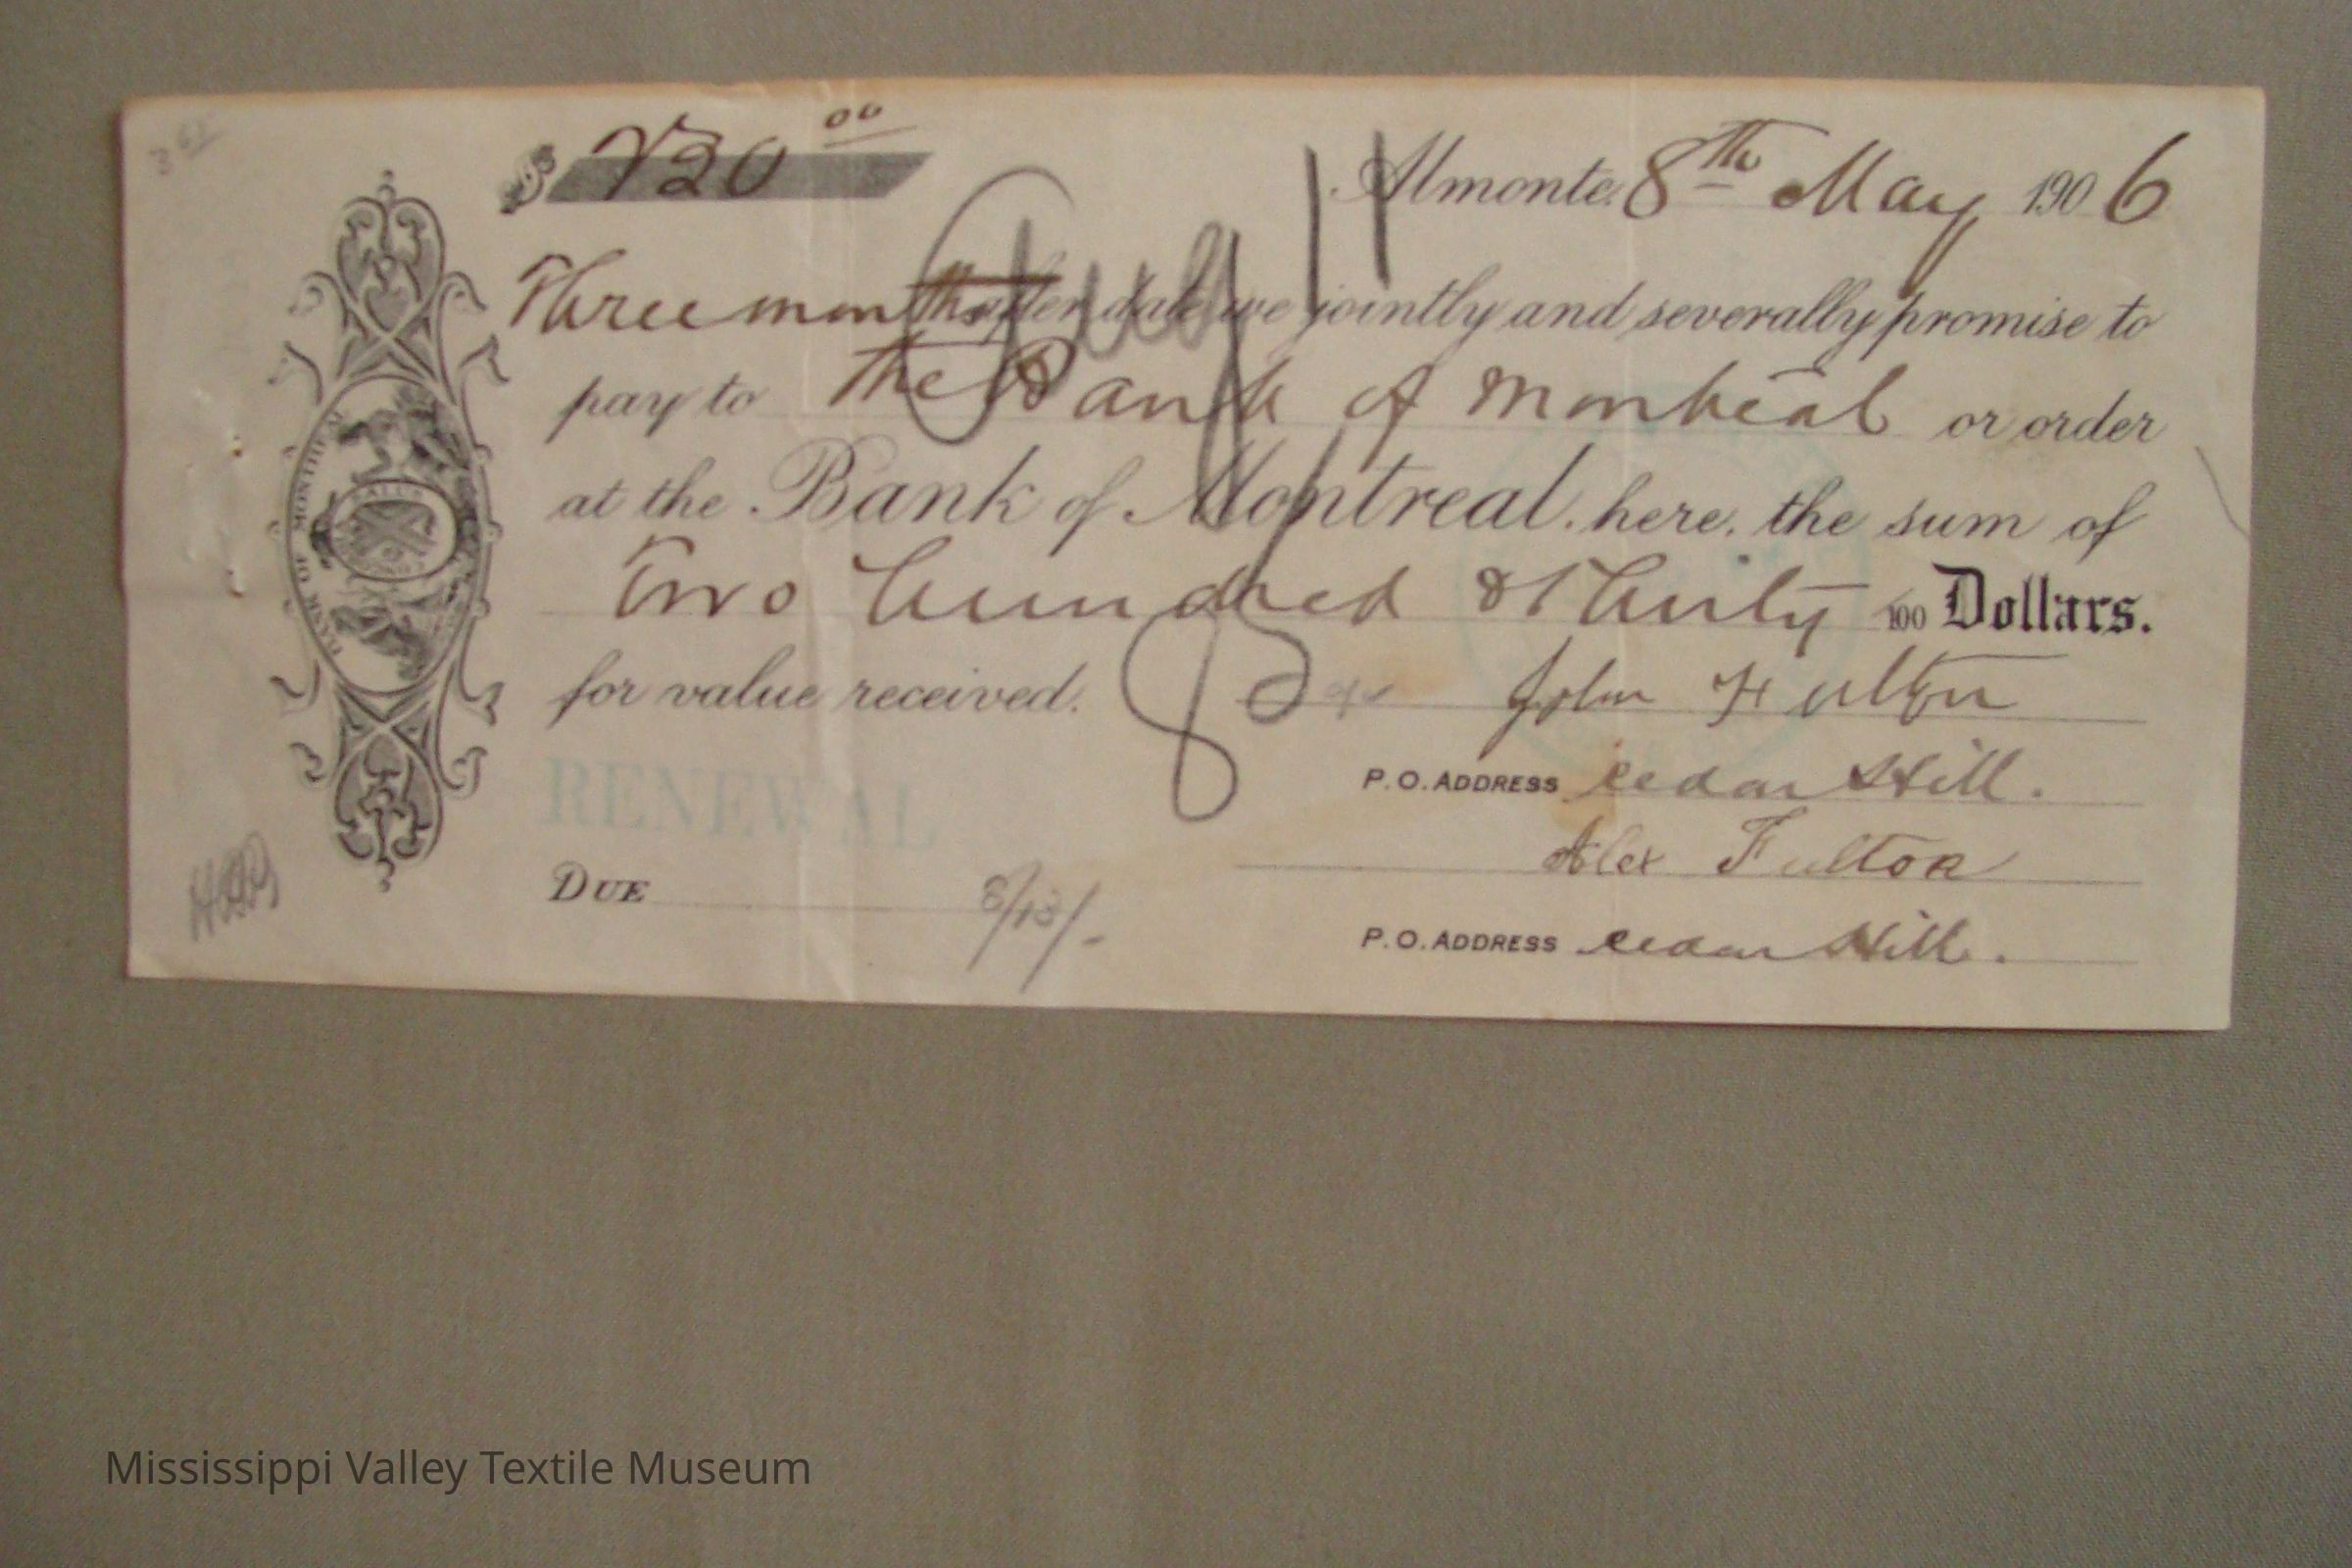 $ 230 00
Almonte. 8th May 1906
July 11
Three months after date we jointly and severally promise to
pay to The Bank of Montreal or order
at the Bank of Montreal. here. the sum of
Two hundred & thirty 100 Dollars.
for value received.
John Fulton
RENEWAL
P.O. ADDRESS Cedar Hill.
Alex Fulton
DUE 8/13/-
P.O. ADDRESS Cedar Hill.
BANK OF MONTREAL
Mississippi Valley Textile Museum